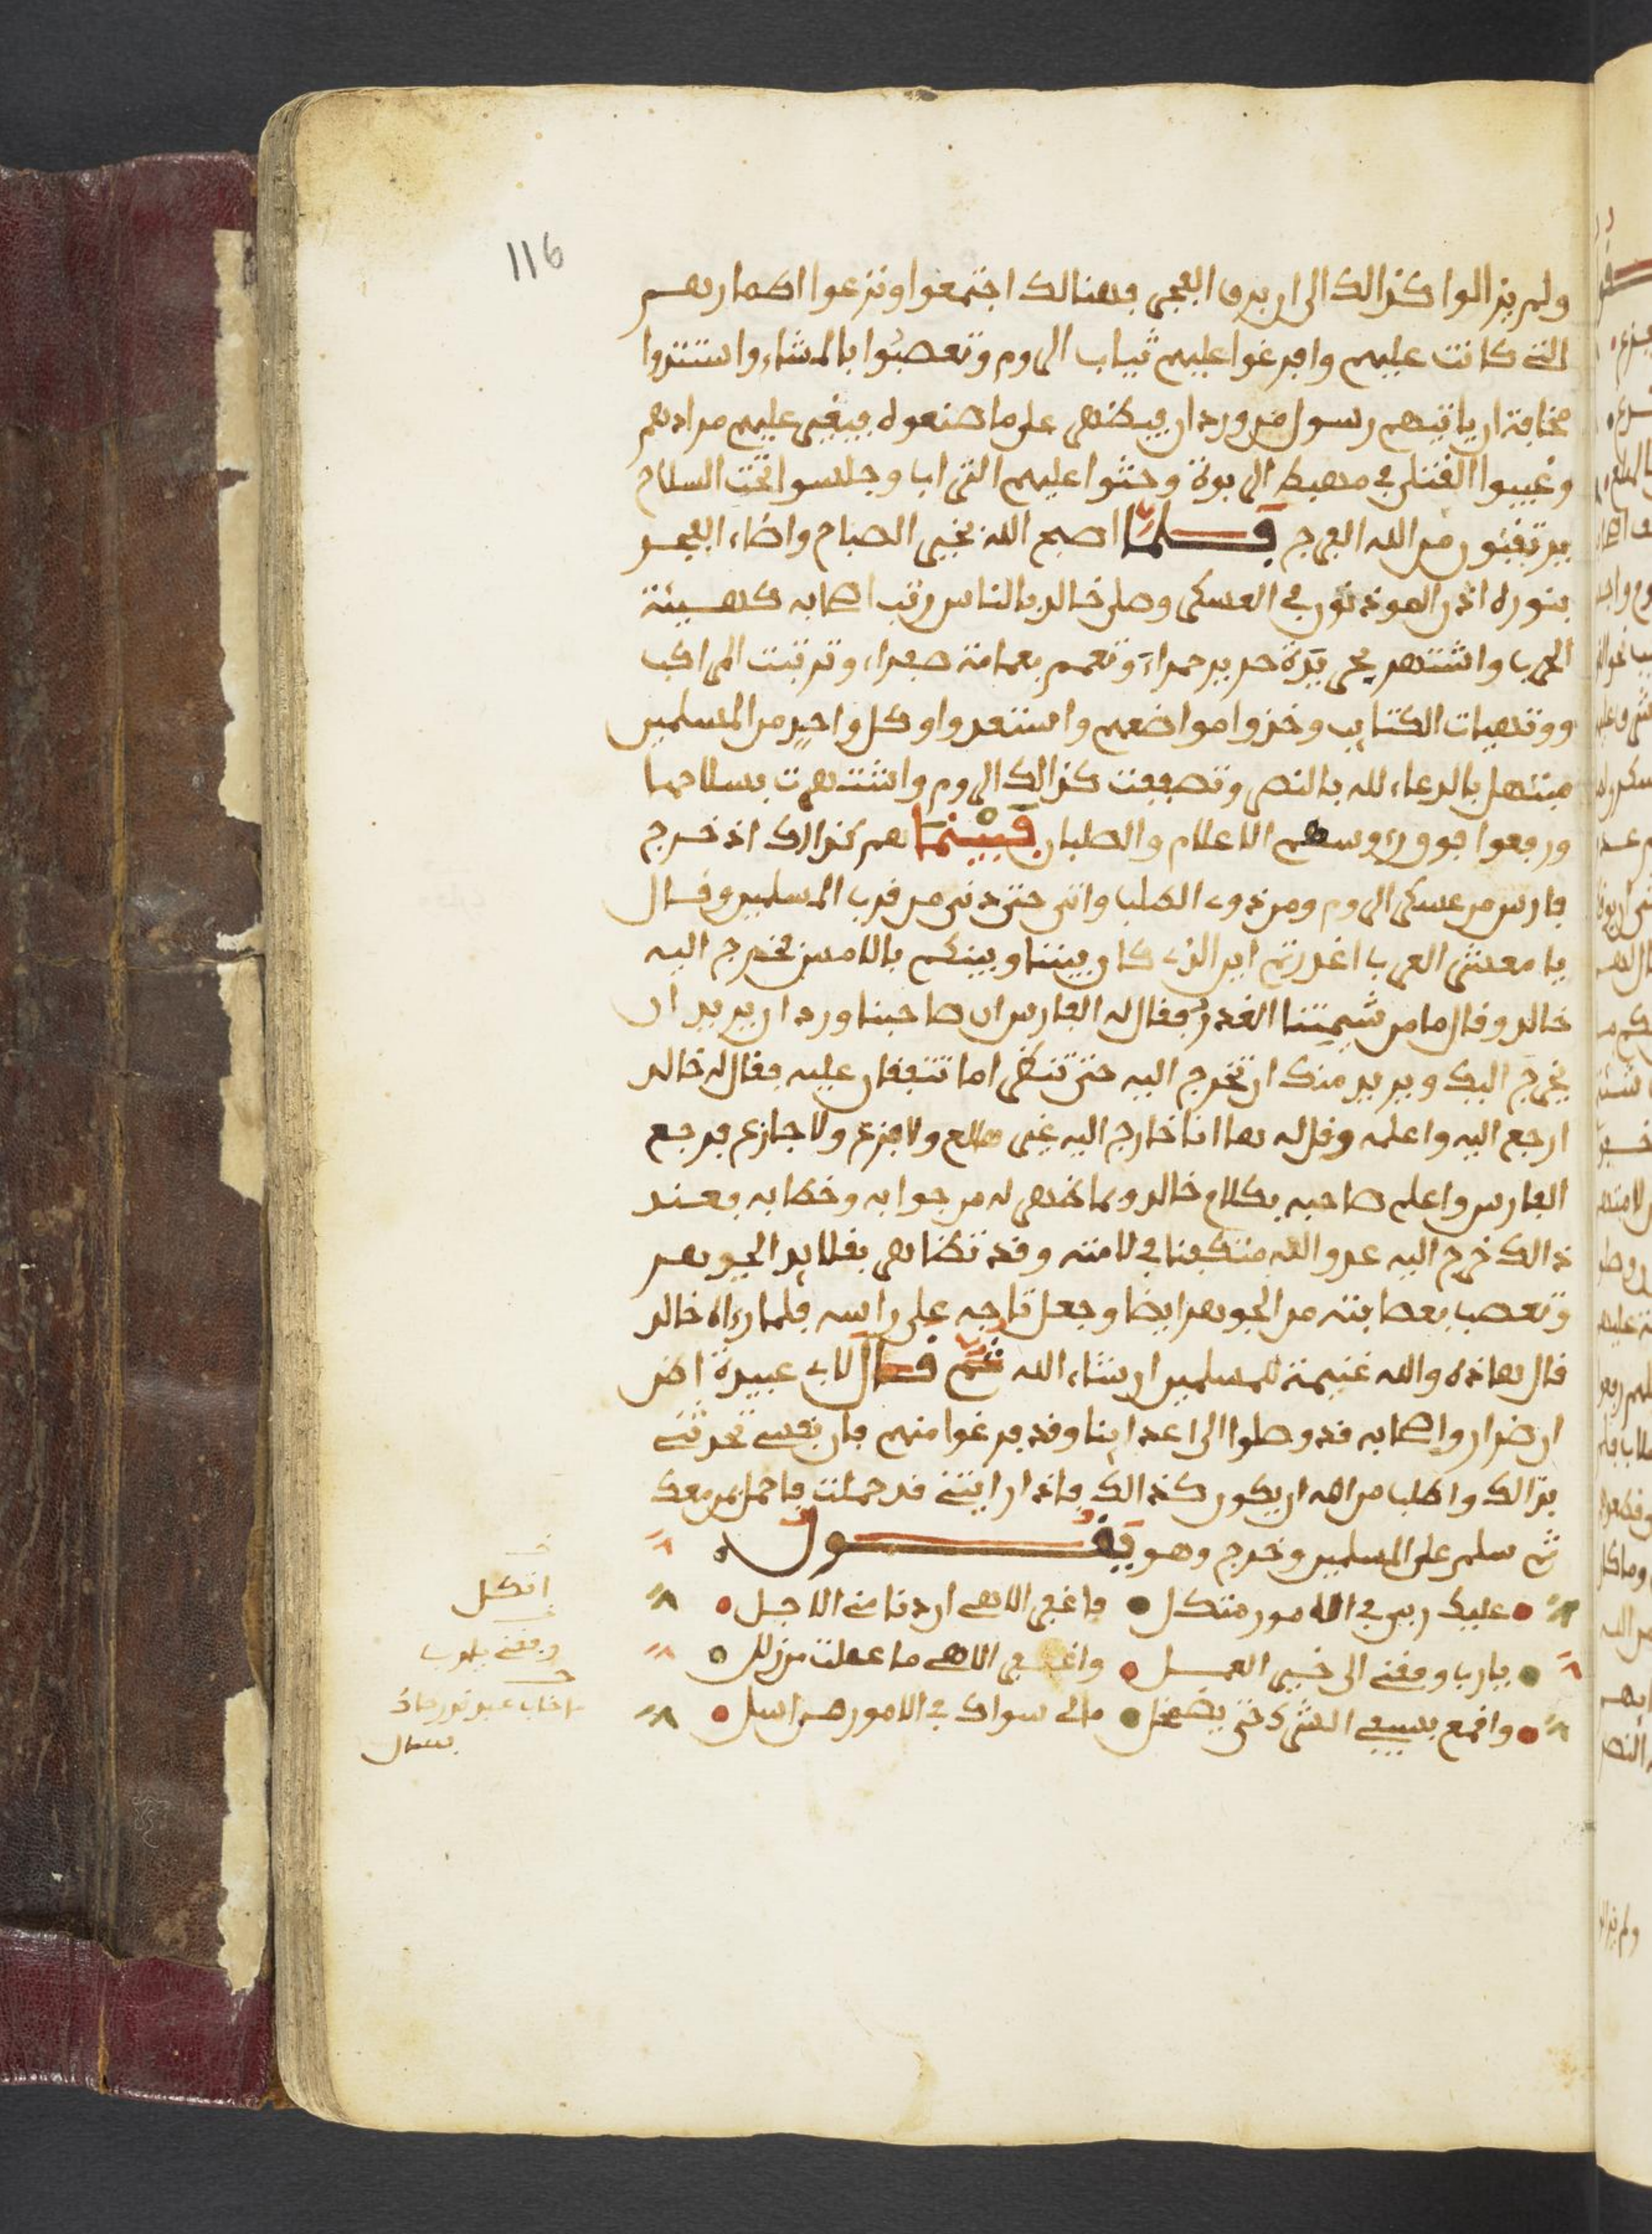 116
ولم يزالوا كذالك الى ان برق الفجر فهنالك اجتمعوا ونزعوا اطمارهم
التي كانت عليهم وافرغوا عليهم ثياب الروم وتعصبوا بالمشاء واستتروا
مخافة ان ياتيهم رسول من وردان فينظر على ما صنعوه فيغير عليهم مرادهم
وغيبوا القتلى في مهبط الربوة وحثوا عليهم التراب وجلسوا تحت السلاح
يرتقبون من الله الفرج فلما اصبح الله بخير الصباح واضاء الفجر
بنوره اذن الموذنون في العسكر وصلى خالد بالناس رتب اصحابه كهيئة
الحرب واشتهر في بردة حرير حمراء وتعمم بعمامة صفراء وترتبت المراكب
ووتهيات الكتايب وخذوا مواضعهم واستعدوا وكل واحد من المسلمين
مبتهل بالدعاء لله بالنصر وتصففت كذالك الروم واشتهرت بسلاحها
ورفعوا فوق رءوسهم الاعلام والصلبان فبينما هم كذالك اذ خرج
فارس من عسكر الروم ومن ذوي الصلب واتى حتى دنى من قرب المسلمين وقال
يا معشر العرب اغدرتم اين الذي كان بيننا وبينكم بالامس فخرج اليه
خالد وقال ما من شيمتنا الغدر فقال له الفارس ان صاحبنا وردان يريد ان
يخرج اليك ويريد منك ان تخرج اليه حتى تنظر اما تتفقان عليه فقال له خالد
ارجع اليه واعلمه وقل له ها انا خارج اليه غير هالع ولا فزع ولا جازع فرجع
الفارس واعلم صاحبه بكلام خالد وما ظهر له من جوابه وخطابه فعند
ذالك خرج اليه عدو الله متكفنا في لامته وقد تظاهر بقلايد الجوهر
وتعصب بعصابته من الجوهر ايضا وجعل تاجه على راسه فلما رءاه خالد
قال هاذه والله غنيمة للمسلمين ان شاء الله ثم قال لابي عبيدة اظن
ان ضرار واصحابه قد وصلوا الى اعداينا وقد فرغوا منهم فان نفسي تحدثني
بذالك واطلب من الله ان يكون كذالك فاذا رايتني قد حملت فاحمل بمن معك
ثم سلم على المسلمين وخرج وهو يقول
عليك ربي في الامور متكل فاغفر الاهي ان دنا مني الاجل
يا رب وفقني الى خير العمل واغفر الاهي ما عملت من زلل
واقمع بسيفي الشرك حتى يضمحل مالي سواك في الامور من امل
اتكل